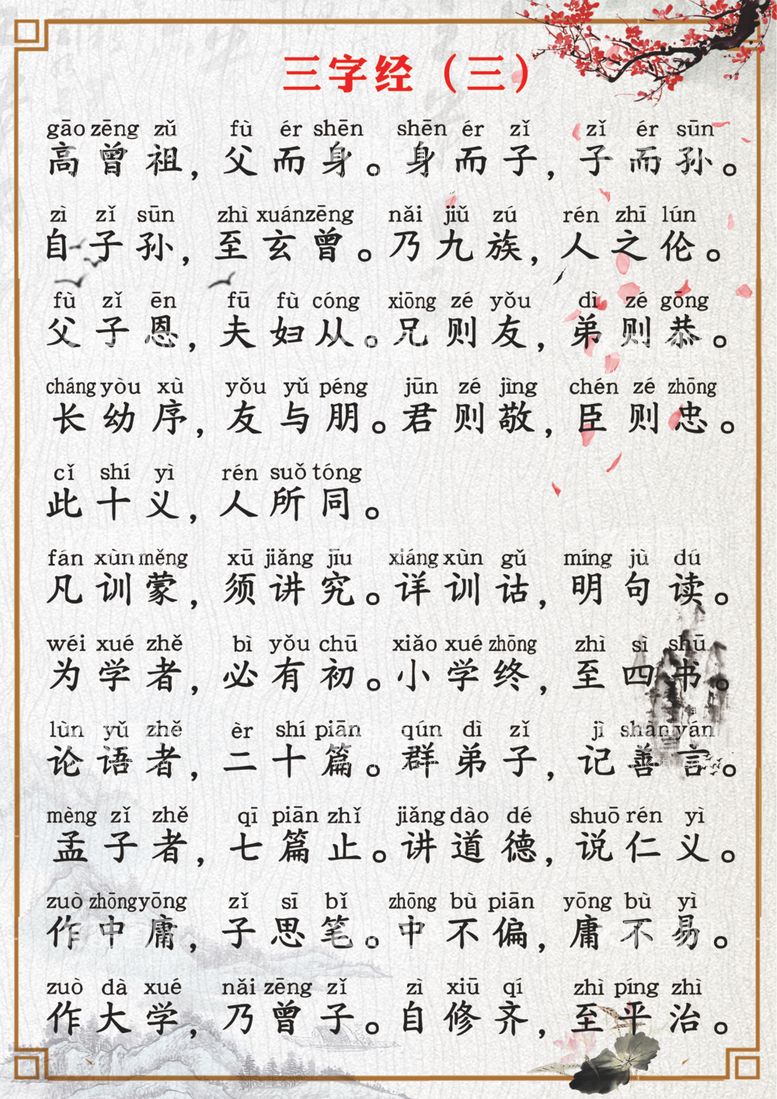 三字经（三）
gāo zēng zǔ fù ér shēn shēn ér zǐ zǐ ér sūn
高曾祖，父而身。身而子，子而孙。
zì zǐ sūn zhì xuán zēng nǎi jiǔ zú rén zhī lún
自子孙，至玄曾。乃九族，人之伦。
fù zǐ ēn fū fù cóng xiōng zé yǒu dì zé gōng
父子恩，夫妇从。兄则友，弟则恭。
cháng yòu xù yǒu yǔ péng jūn zé jìng chén zé zhōng
长幼序，友与朋。君则敬，臣则忠。
cǐ shí yì rén suǒ tóng
此十义，人所同。
fán xùn měng xū jiǎng jīu xiáng xùn gǔ míng jù dú
凡训蒙，须讲究。详训诂，明句读。
wéi xué zhě bì yǒu chū xiǎo xué zhōng zhì sì shū
为学者，必有初。小学终，至四书。
lùn yǔ zhě èr shí piān qún dì zǐ jì shàn yán
论语者，二十篇。群弟子，记善言。
mèng zǐ zhě qī piān zhǐ jiǎng dào dé shuō rén yì
孟子者，七篇止。讲道德，说仁义。
zuò zhōng yōng zǐ sī bǐ zhōng bù piān yōng bù yì
作中庸，子思笔。中不偏，庸不易。
zuò dà xué nǎi zēng zǐ zì xiū qí zhì píng zhì
作大学，乃曾子。自修齐，至平治。